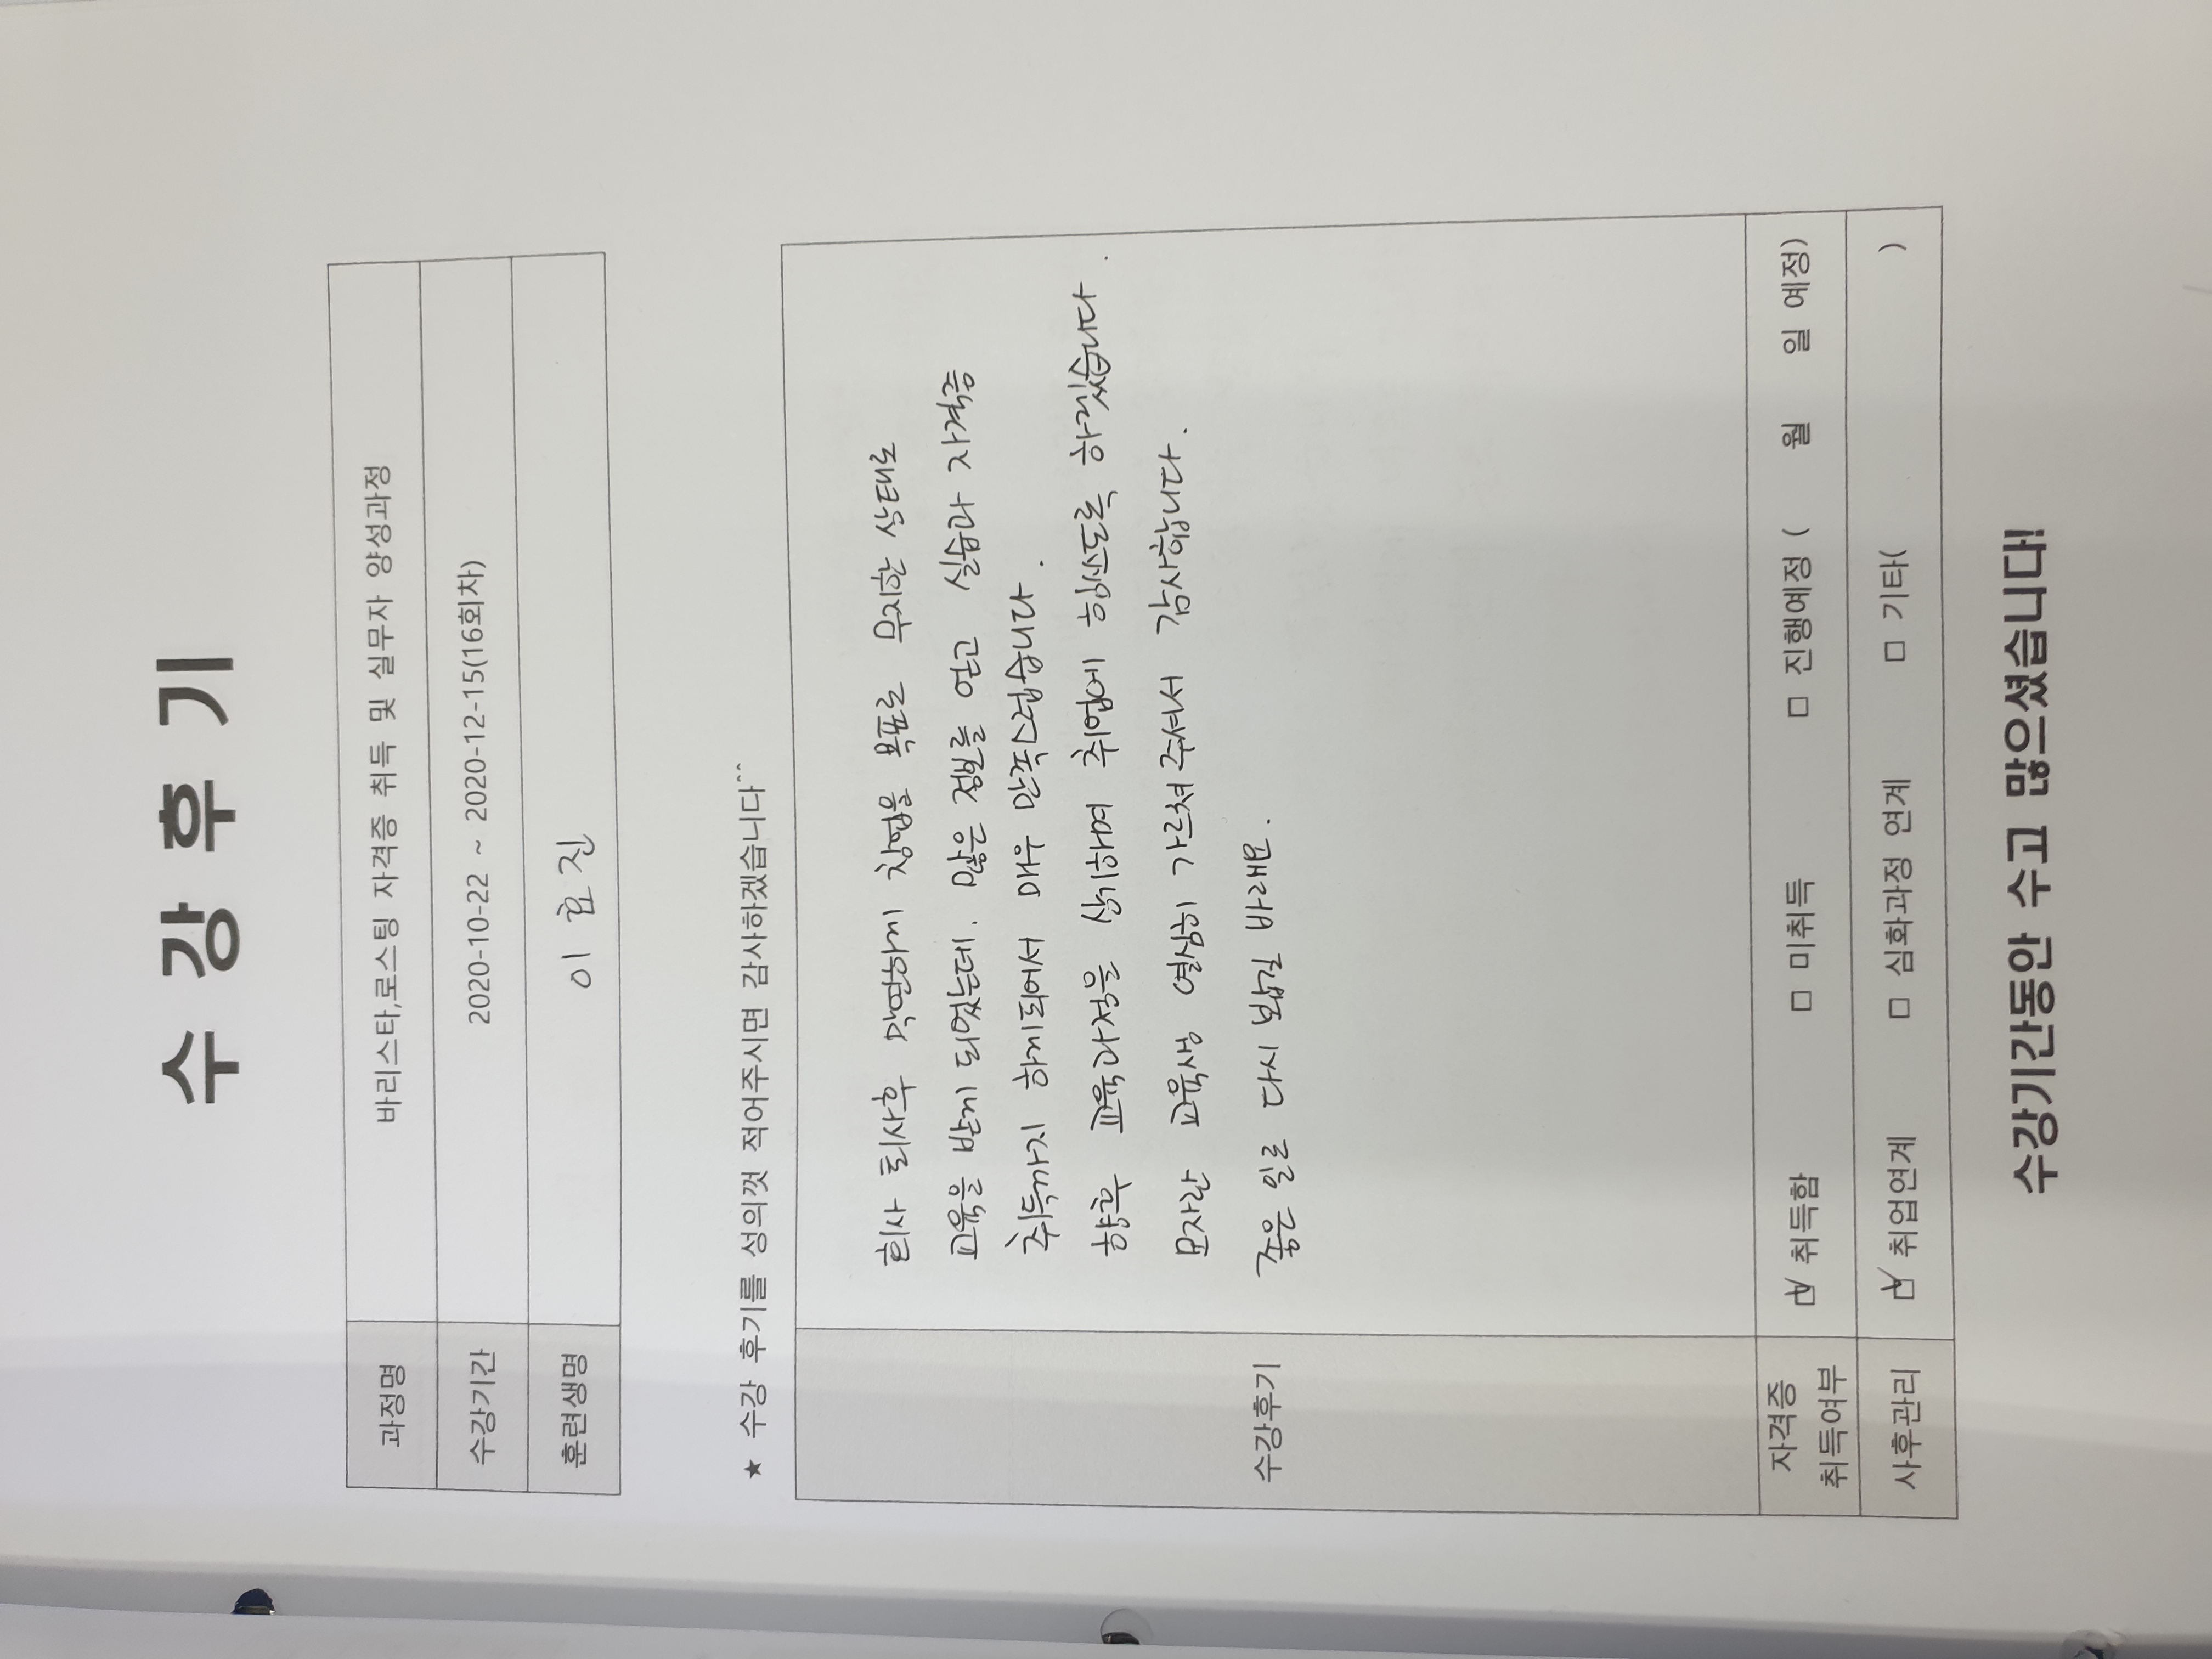 수 강 후 기
과정명 바리스타,로스팅 자격증 취득 및 실무자 양성과정
수강기간 2020-10-22 ~ 2020-12-15(16회차)
훈련생명 이 효 진
★ 수강 후기를 성의껏 적어주시면 감사하겠습니다^^
회사 퇴사후 막연하게 창업을 목표로 무지한 상태로
교육을 받게 되었는데. 많은 정보를 얻고 실습과 자격증
취득까지 하게되어서 매우 만족스럽습니다.
향후 교육과정을 상기하며 취업에 힘쓰도록 하겠습니다.
모자란 교육생 열심히 가르쳐주셔서 감사합니다.
좋은 일로 다시 뵙길 바래요.
수강후기
자격증
취득여부 ☑ 취득함 □ 미취득 □ 진행예정 ( 월 일 예정)
사후관리 ☑ 취업연계 □ 심화과정 연계 □ 기타( )
수강기간동안 수고 많으셨습니다!